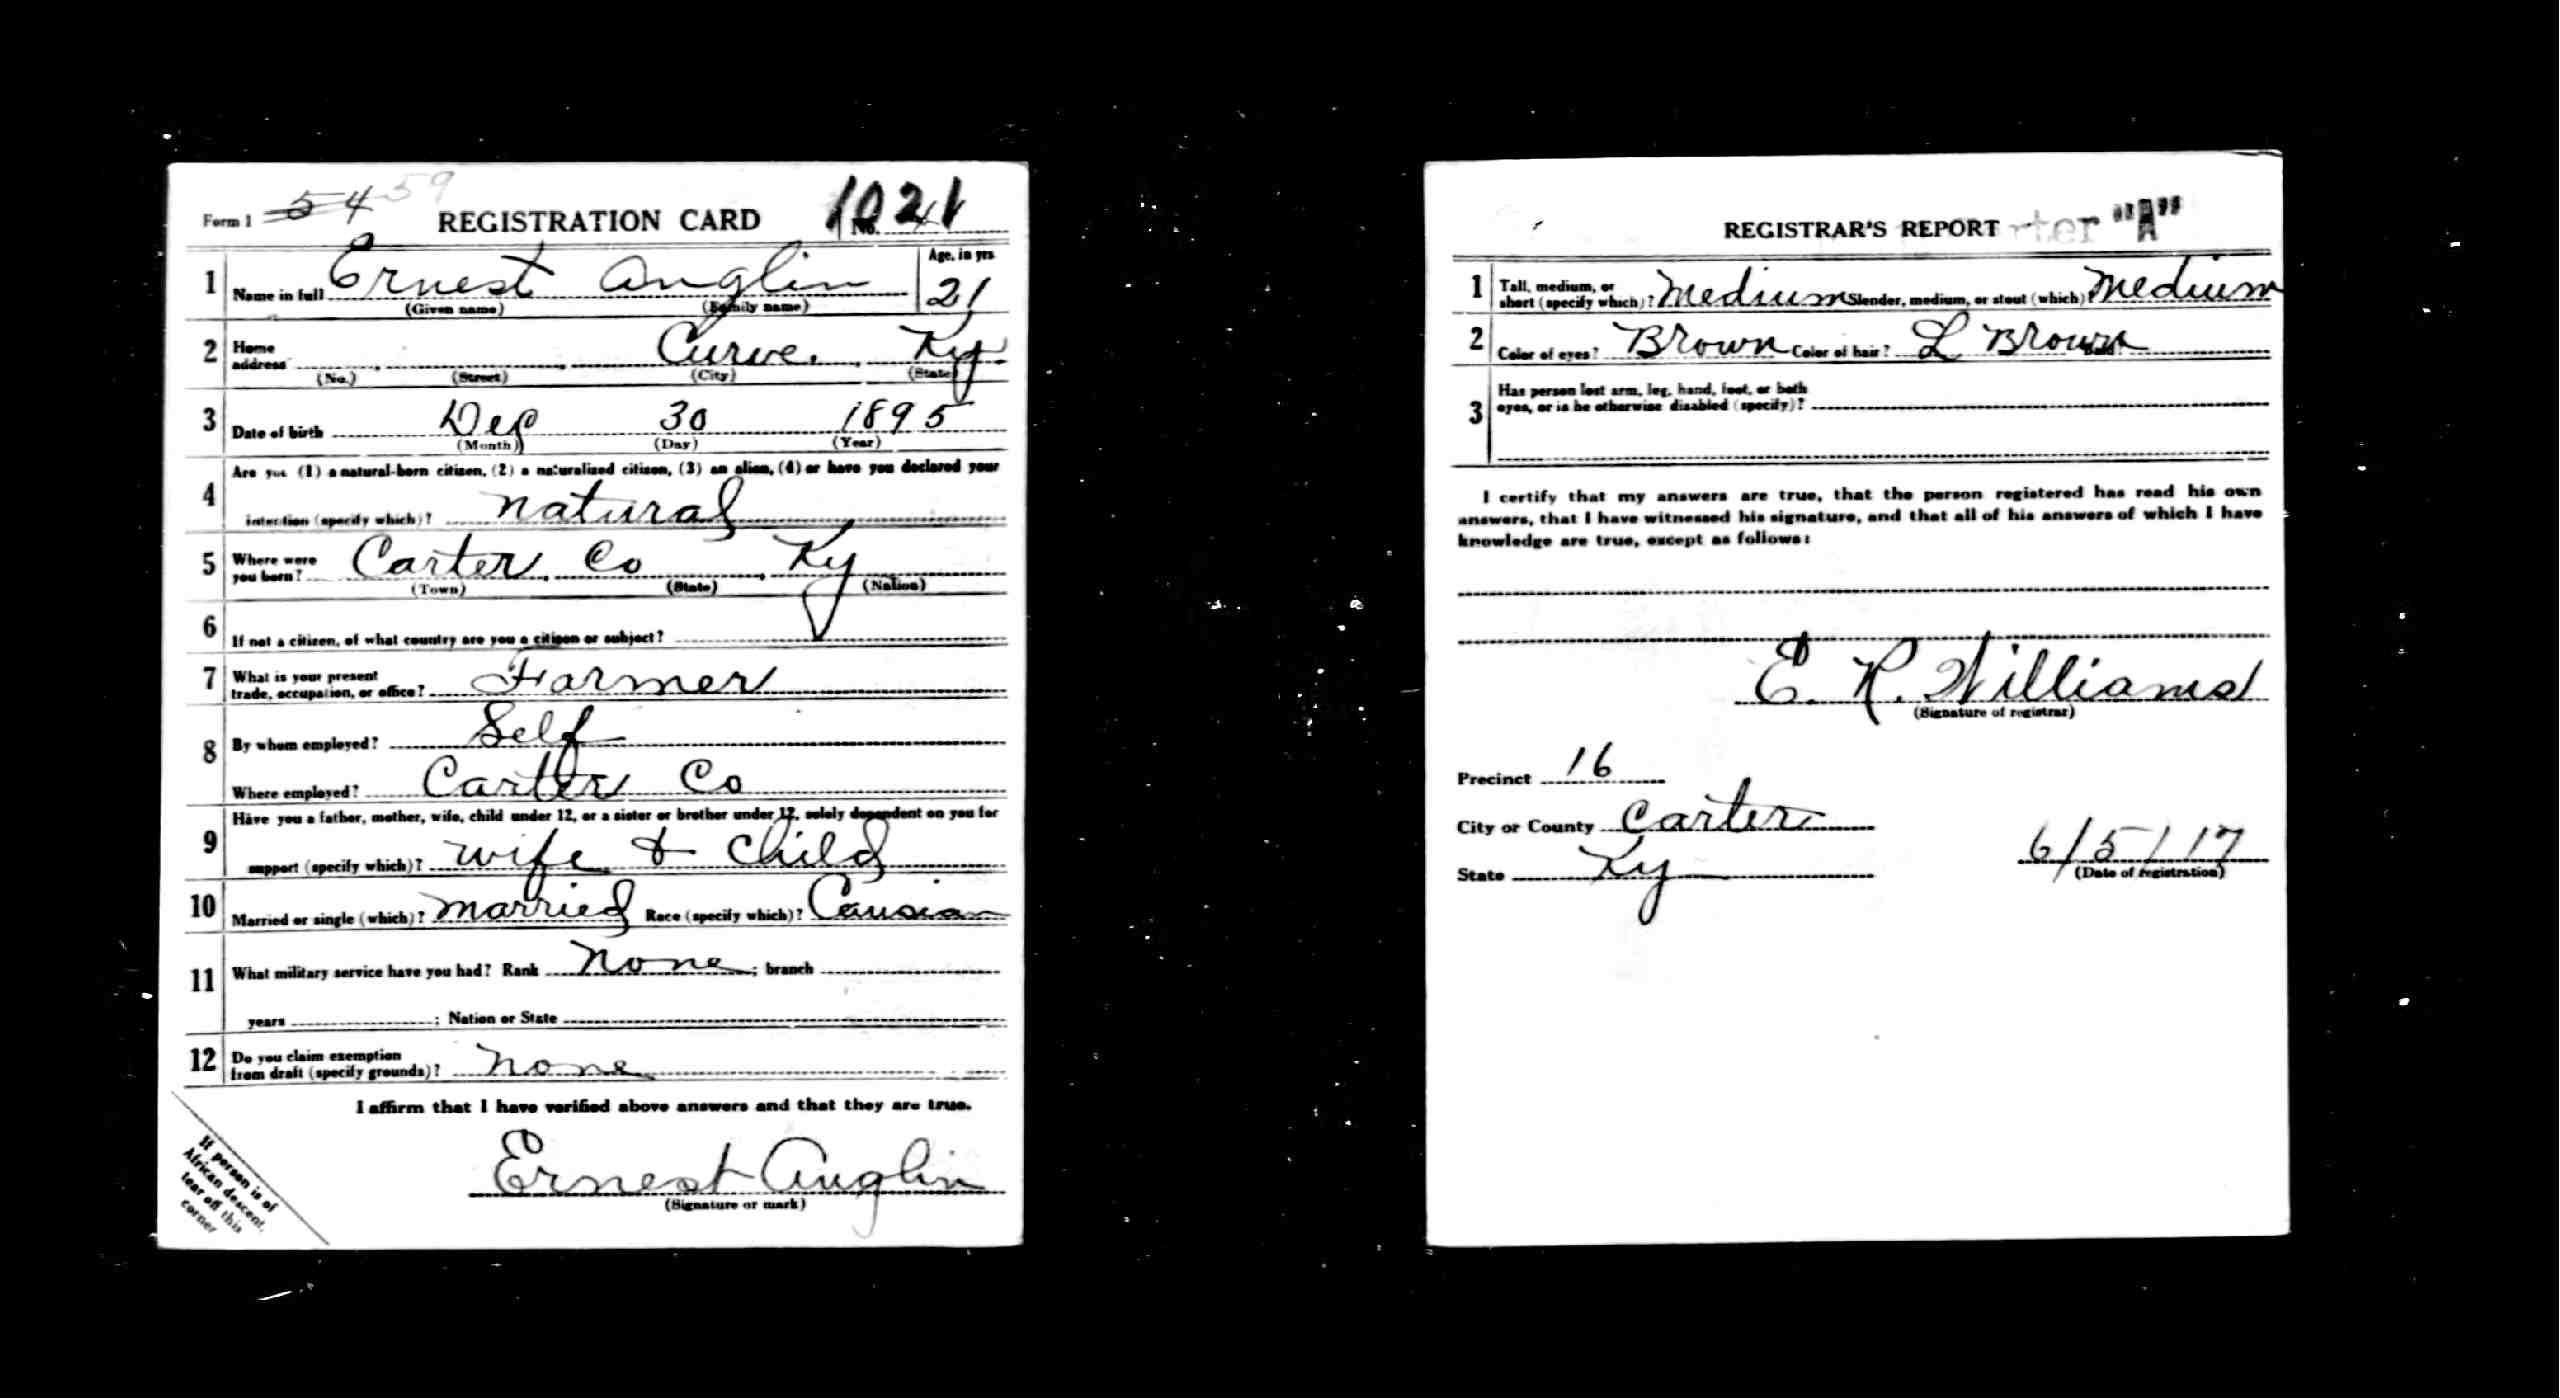 Form 1 54 59 REGISTRATION CARD 1021
No. 41
1 Name in full Ernest Anglin Age, in yrs 21
(Given name) (Family name)
2 Home address Curve. Ky
(No.) (Street) (City) (State)
3 Date of birth Dec 30 1895
(Month) (Day) (Year)
4 Are you (1) a natural-born citizen, (2) a naturalized citizen, (3) an alien, (4) or have you declared your
intention (specify which)? natural
5 Where were you born? Carter Co Ky
(Town) (State) (Nation)
6 If not a citizen, of what country are you a citizen or subject?
7 What is your present trade, occupation, or office? Farmer
8 By whom employed? Self
Where employed? Carter Co
9 Have you a father, mother, wife, child under 12, or a sister or brother under 12, solely dependent on you for
support (specify which)? wife & child
10 Married or single (which)? married Race (specify which)? Causian
11 What military service have you had? Rank none ; branch
years ; Nation or State
12 Do you claim exemption from draft (specify grounds)? none
I affirm that I have verified above answers and that they are true.
Ernest Anglin
(Signature or mark)
If person is of
African descent,
tear off this
corner
REGISTRAR'S REPORT rter "A"
1 Tall, medium, or short (specify which)? Medium Slender, medium, or stout (which)? Medium
2 Color of eyes? Brown Color of hair? L Brown Bald?
3 Has person lost arm, leg, hand, foot, or both
eyes, or is he otherwise disabled (specify)?
I certify that my answers are true, that the person registered has read his own
answers, that I have witnessed his signature, and that all of his answers of which I have
knowledge are true, except as follows:
E. R. Williams
(Signature of registrar)
Precinct 16
City or County Carter
State Ky 6/5/17
(Date of registration)